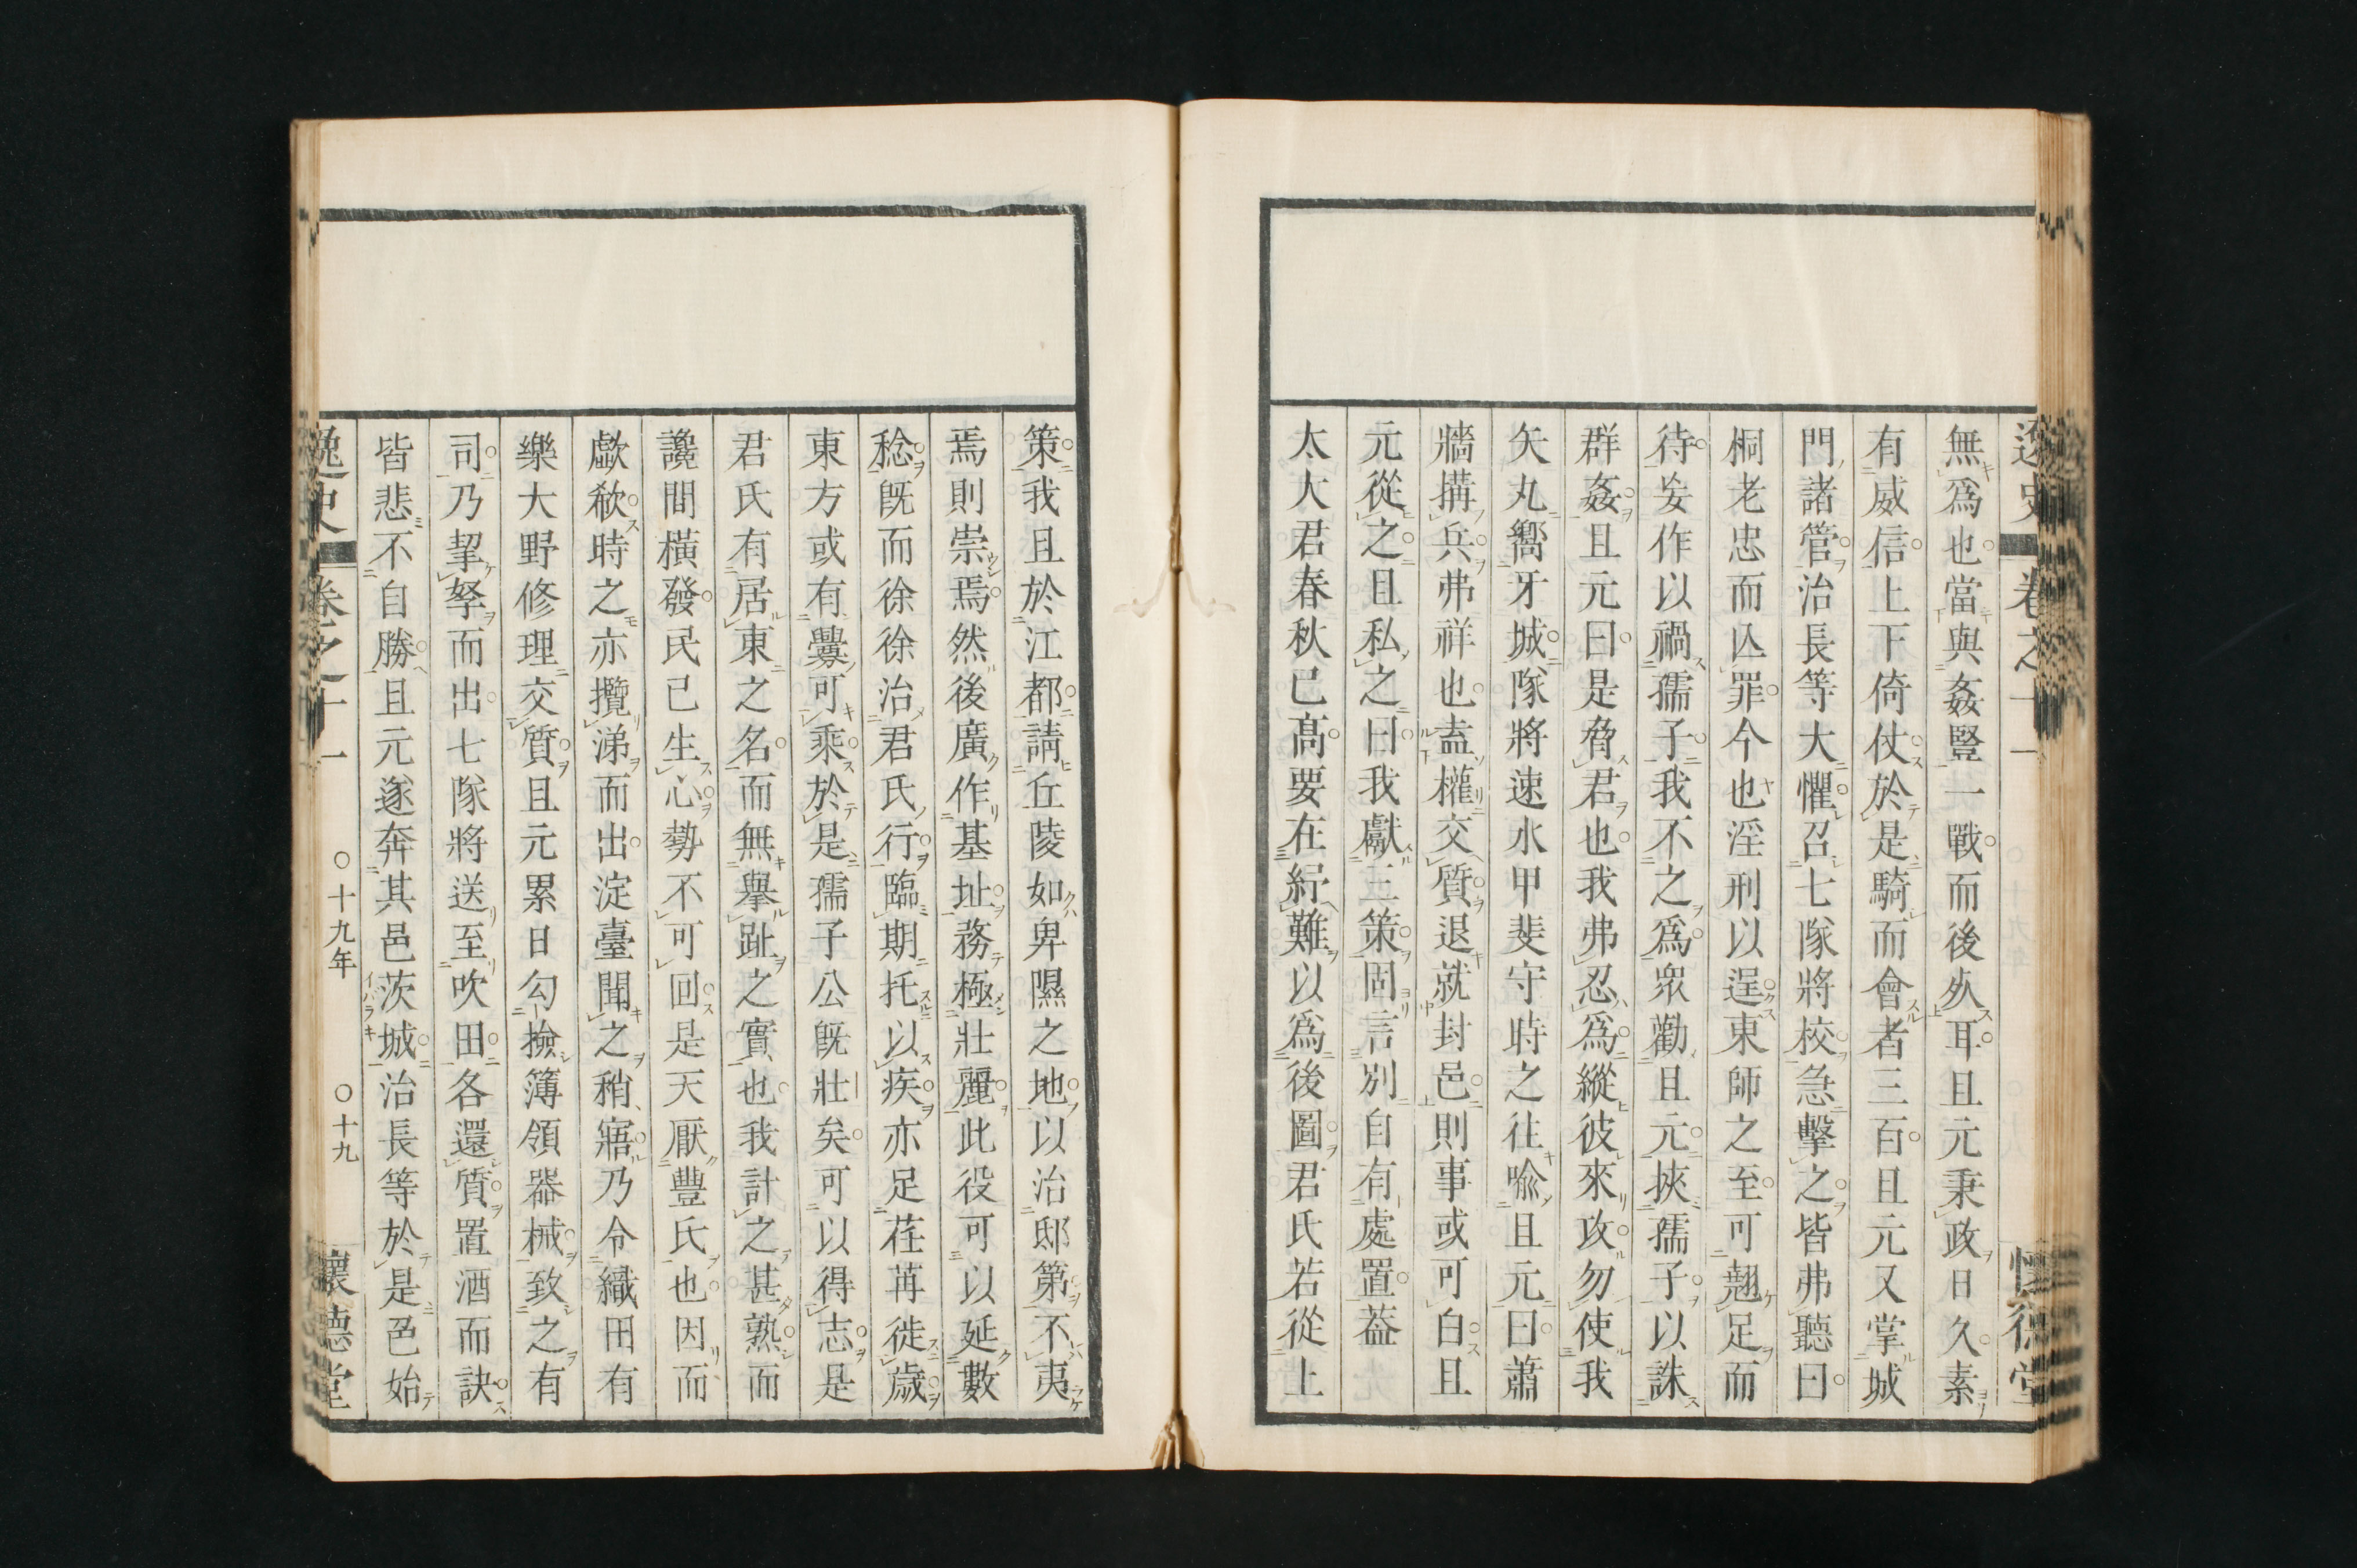 無爲也當與姦豎一戰而後㱕耳且元秉政日久素
有威信上下倚仗於是騎而會者三百且元又掌城
門諸管治長等大懼召七隊將校急擊之皆弗聽曰
桐老忠而亾罪今也淫刑以逞東師之至可翹足而
待妄作以禍孺子我不之爲衆勸且元挾孺子以誅
群姦且元曰是脅君也我弗忍爲縱彼來攻勿使我
矢丸嚮牙城隊將速水甲斐守時之往喩且元曰蕭
牆搆兵弗祥也盍權交質退就封邑則事或可白且
元從之且私之曰我獻三策固言別自有處置葢
太大君春秋已高要在紓難以爲後圖君氏若從上
策我且於江都請丘陵如卑隰之地以治邸第不夷
焉則崇焉然後廣作基址務極壯麗此役可以延數
稔既而徐徐治君氏行臨期托以疾亦足荏苒徙歲
東方或有釁可乘於是孺子公既壯矣可以得志是
君氏有居東之名而無擧趾之實也我計之甚熟而
讒間橫發民已生心勢不可回是天厭豐氏也因而
歔欷時之亦攬涕而出淀臺聞之稍寤乃令織田有
樂大野修理交質且元累日勾撿簿領器械致之有
司乃挈孥而出七隊將送至吹田各還質置酒而訣
皆悲不自勝且元遂奔其邑茨城治長等於是邑始
逸史 卷之十一 〇十九年 〇十九 懷德堂